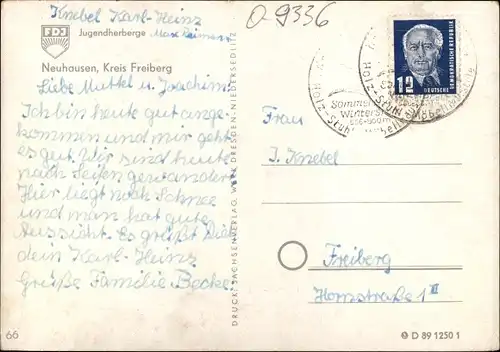 Knebel Karl-Heinz
O-9336
FDJ
Jugendherberge Max Reimann
Neuhausen, Kreis Freiberg
Liebe Muttel u. Joachim!
Ich bin heute gut ange-
kommen und mir geht
es gut. Wir sind heute
nach Seifen gewandert
Hier liegt noch Schnee
und man hat gute
Aussicht. Es grüßt Dich
dein Karl-Heinz
Grüße Familie Becke.
DRUCK: SACHSENVERLAG, WERK DRESDEN-NIEDERSEDLITZ
12
DEUTSCHE DEMOKRATISCHE REPUBLIK
Sommer
Wintersp
Frau
J. Knebel
Freiberg
Hornstraße 1 II
66
D 89 1250 1